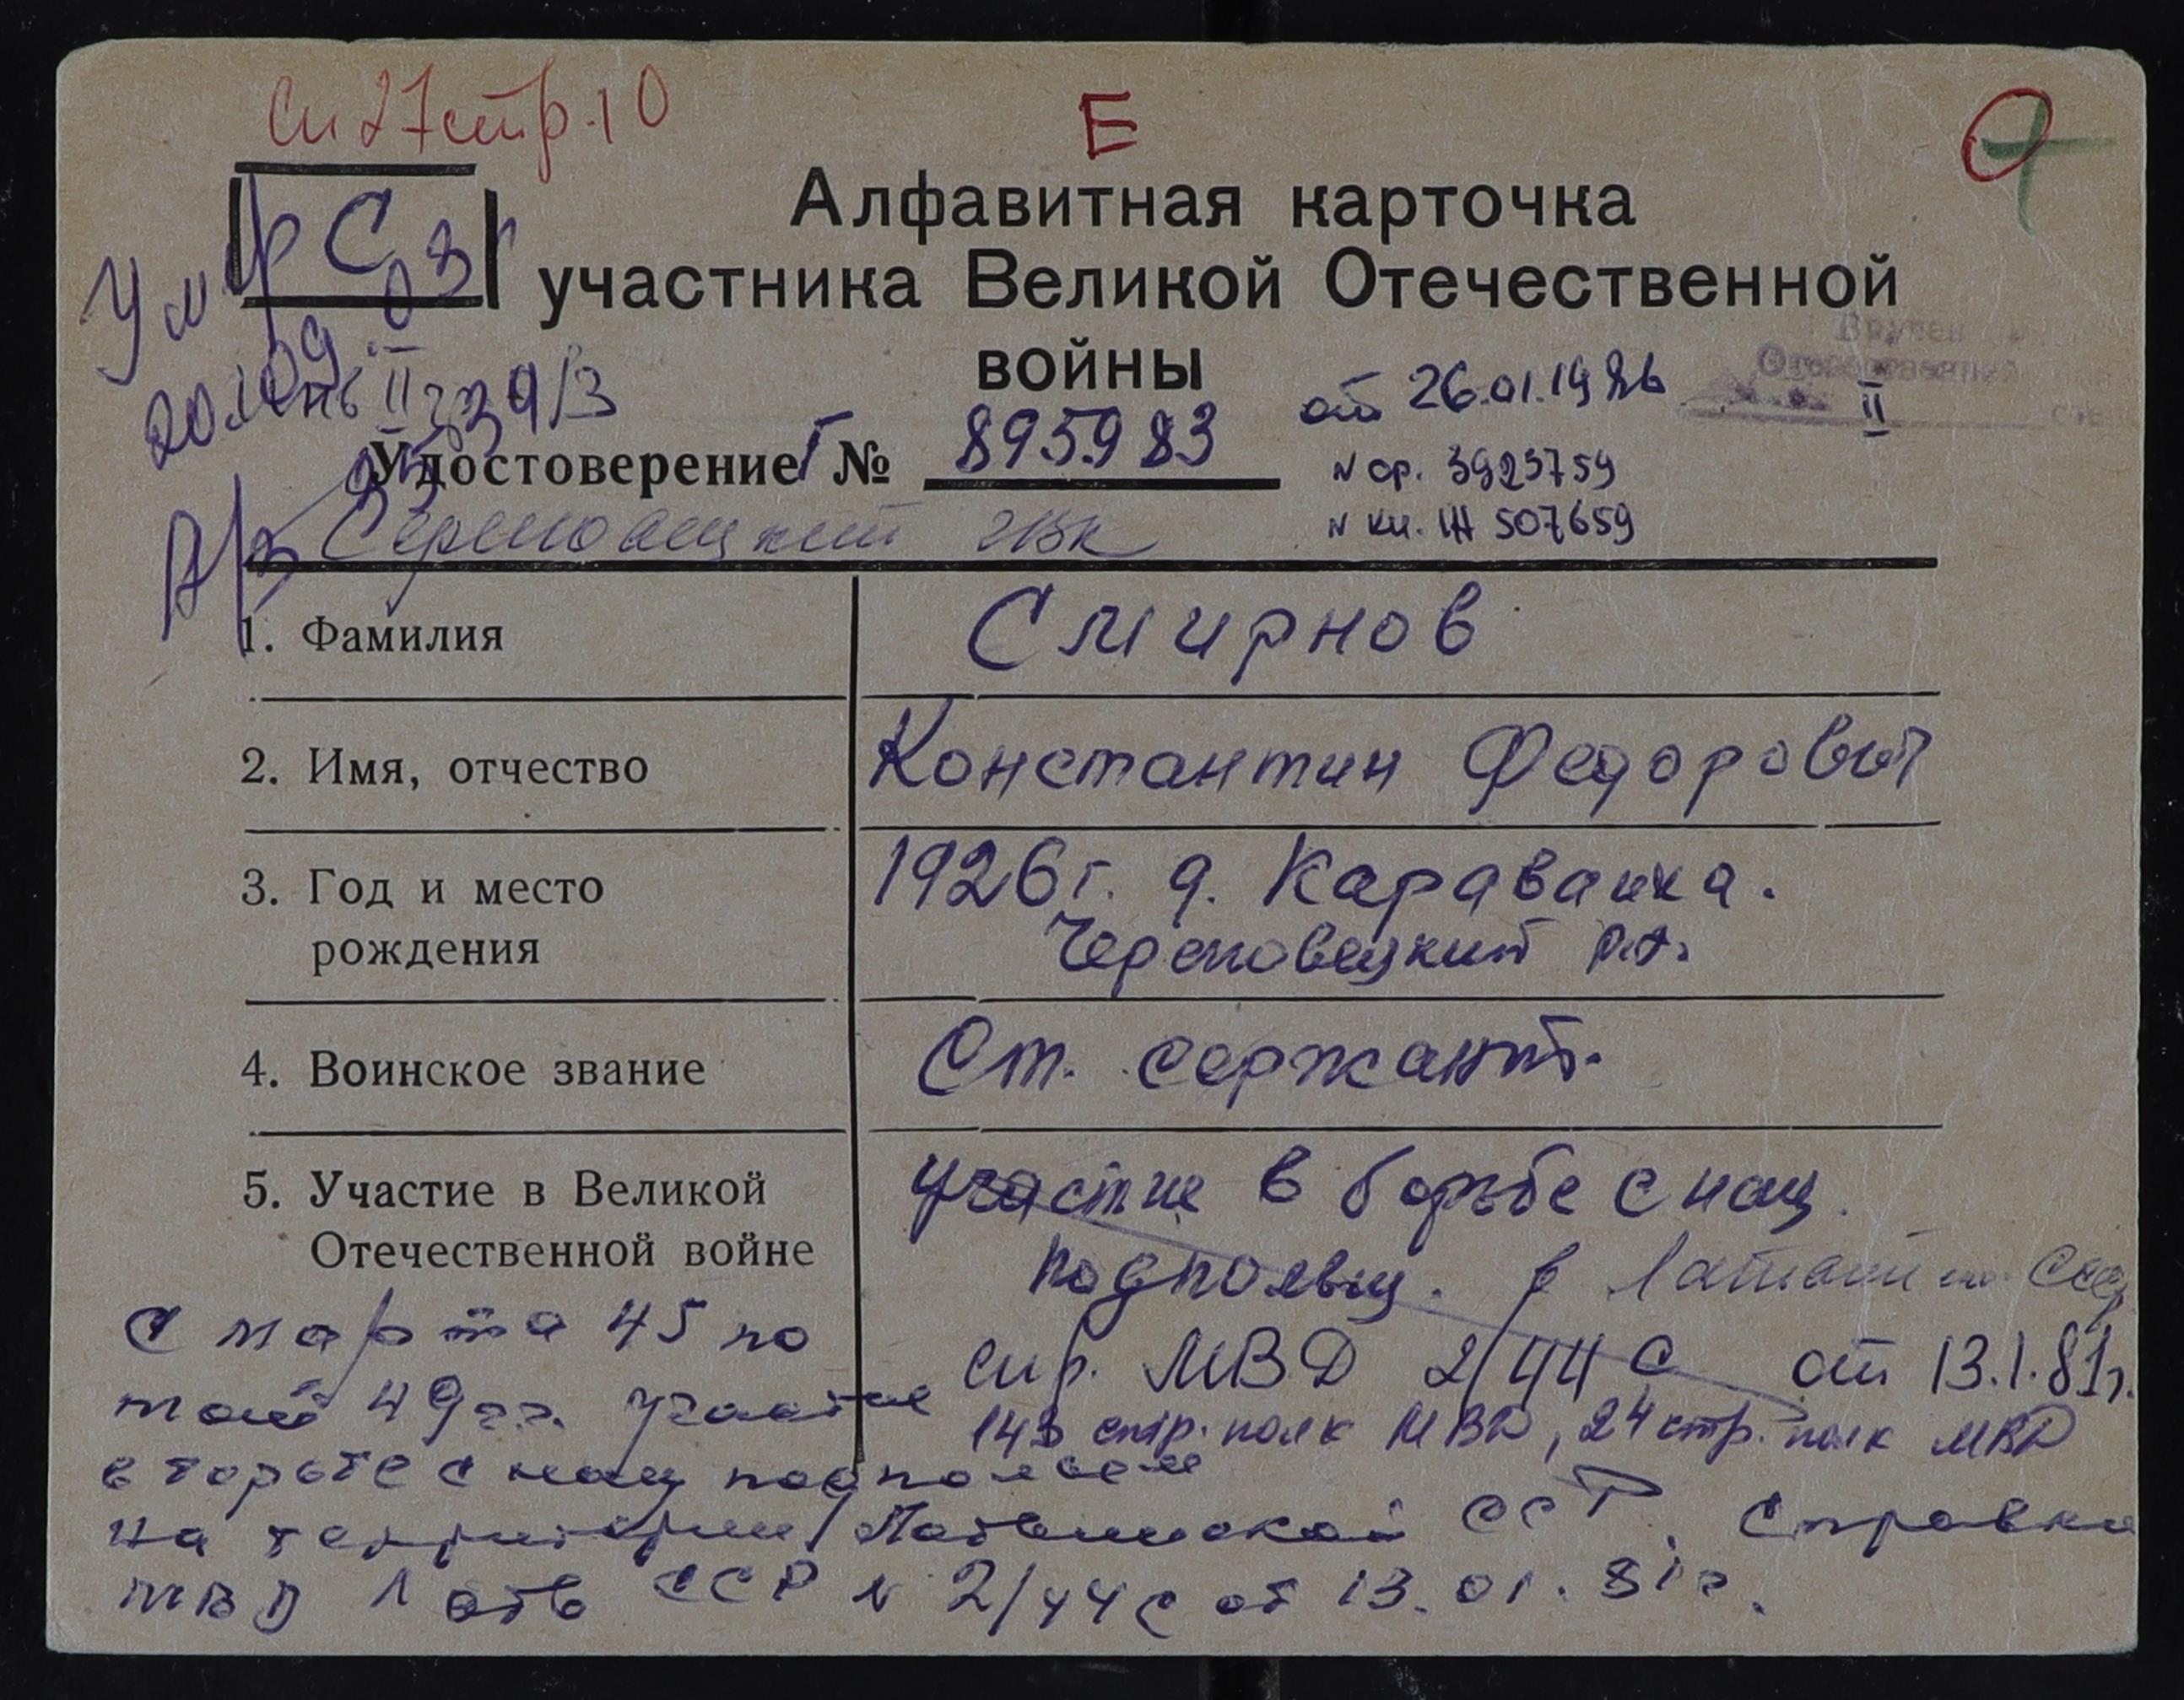 Сп 27 стр. 10
Е
С
Алфавитная карточка
участника Великой Отечественной
войны
Умер
03
Вручен
Отечественной
II
Удостоверение Г № 895983
от 26.01.1986
N ор. 3923759
N кн. 507659
Череповецкий ГВК
1. Фамилия
Смирнов
2. Имя, отчество
Константин Федорович
3. Год и место
рождения
1926 г. д. Караванка.
Череповецкий р.н.
4. Воинское звание
Ст. сержант.
5. Участие в Великой
Отечественной войне
участие в борьбе с нац.
подпольщ. в Латвийской ССР
спр. МВД 2/44 С от 13.1.81г.
143 стр. полк МВД, 24 стр. полк МВД
с марта 45 по
май 49 гг. участие
в борьбе с нац подпольем
на территории Латвийской ССР. Справка
МВД Латв ССР N 2/44 С от 13.01.81г.